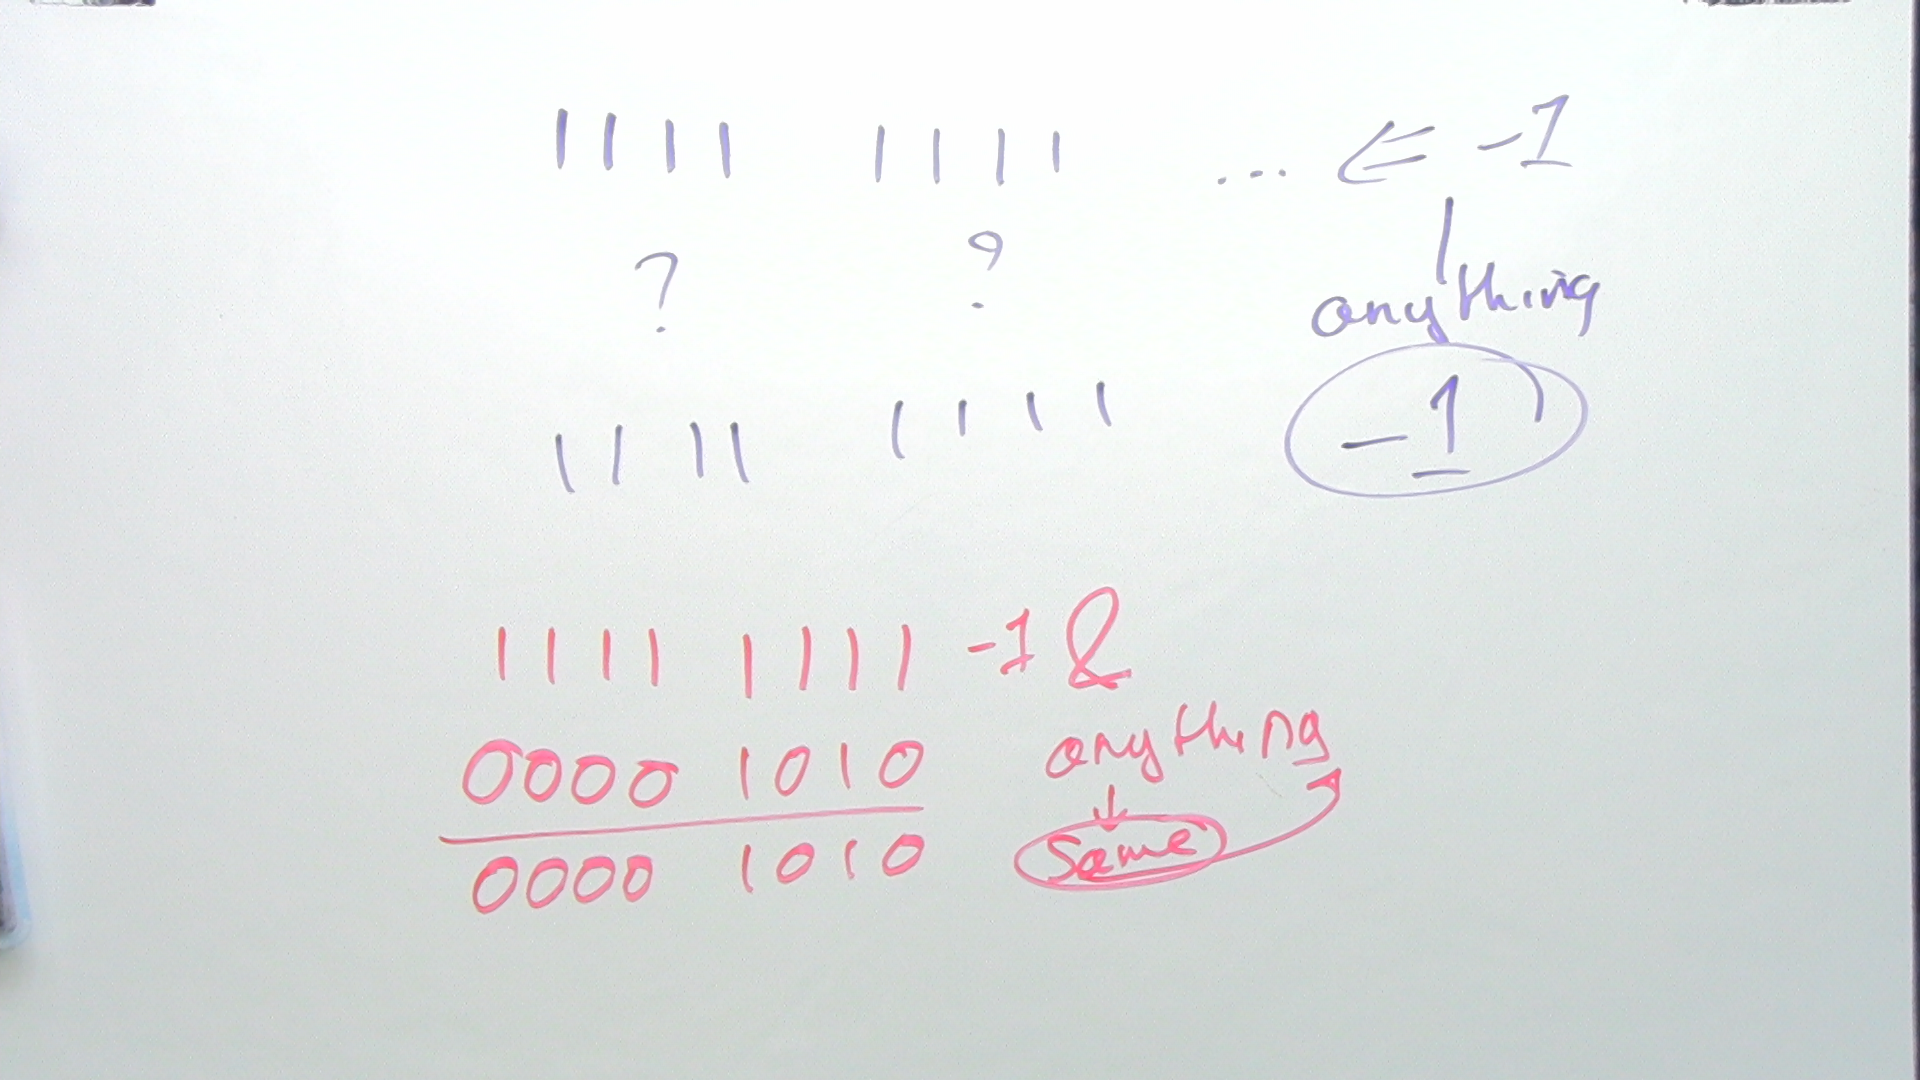 1111 1111 ... <= -1
? ? | anything
1111 1111 -1
1111 1111 -1 &
0000 1010 anything
0000 1010 same